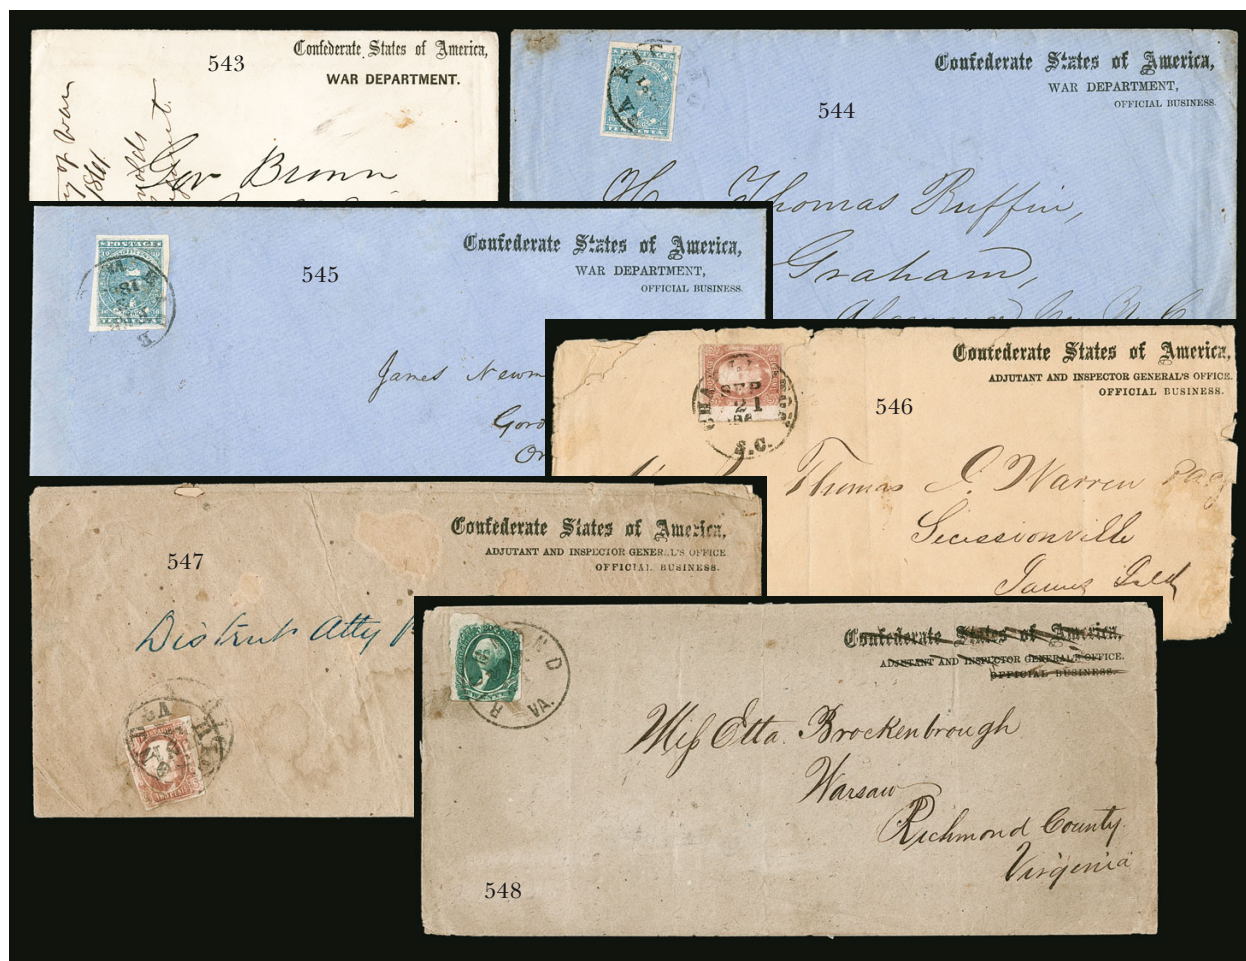 543
Confederate States of America,
WAR DEPARTMENT.
of War
1861
Gov Brown
544
Confederate States of America,
WAR DEPARTMENT,
OFFICIAL BUSINESS.
TEN CENTS
Thomas Ruffin,
Graham,
N. C.
545
POSTAGE
Confederate States of America,
WAR DEPARTMENT,
OFFICIAL BUSINESS.
James Newm
Gord
Or
546
Confederate States of America,
ADJUTANT AND INSPECTOR GENERAL'S OFFICE.
OFFICIAL BUSINESS.
SEP
21
S.C.
Thomas Warren
Secessionville
James Isld
547
Confederate States of America,
ADJUTANT AND INSPECTOR GENERAL'S OFFICE
OFFICIAL BUSINESS.
District Atty
548
Confederate States of America,
ADJUTANT AND INSPECTOR GENERAL'S OFFICE.
OFFICIAL BUSINESS.
VA.
Miss Etta Brockenbrough
Warsaw
Richmond County
Virginia